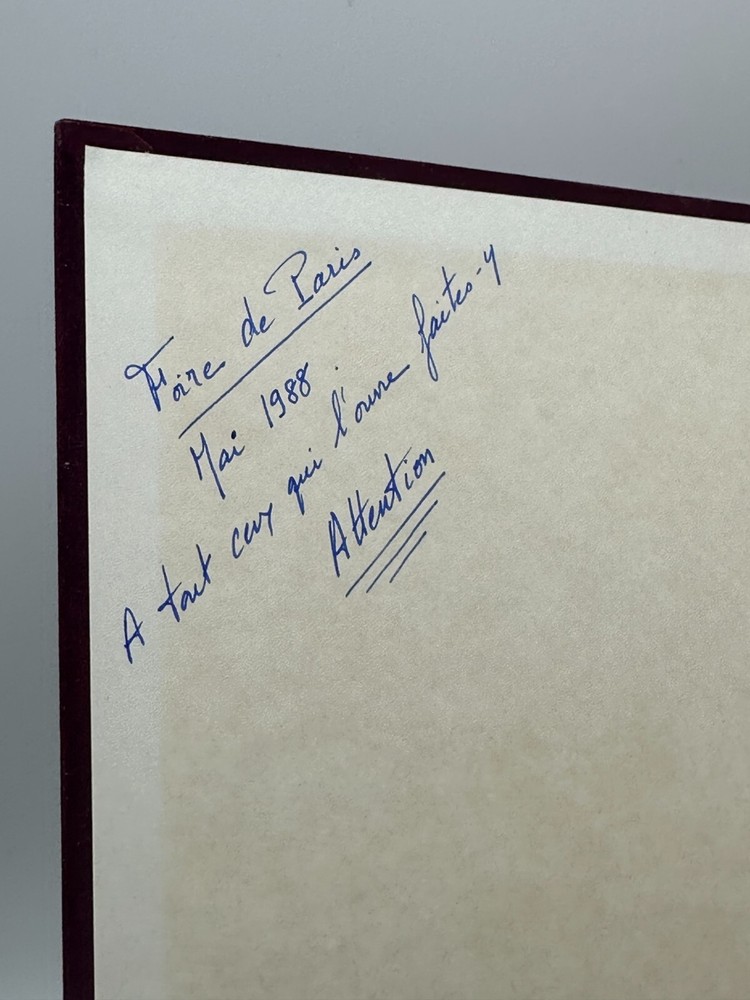 Foire de Paris
Mai 1988.
A tout ceux qui l'ouvre faites-y
Attention